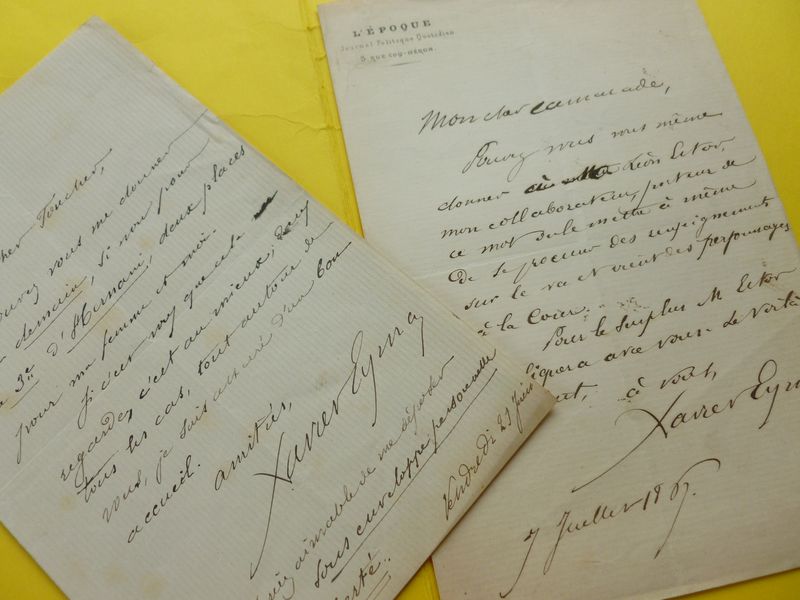 cher Foucher,
pouvez vous me donner
demain, si non pour
3e d'Hernani, deux places
pour ma femme et moi.
Si c'est moy que cela
regarde, c'est au mieux; dans
tous les cas, tout autour de
vous, je suis assuré d'un bon
accueil.
amitiés,
Xavier Eyma
aimable de me répondre
sous enveloppe personnelle
Vendredi 21 juin
L'ÉPOQUE
Journal Politique Quotidien
5, RUE COQ-HÉRON
Mon cher camarade,
Pouvez vous vous même
donner à Léon Estor,
mon collaborateur, porteur de
ce mot ou le mettre à même
de se procurer des renseignements
sur le va et vient des personnages
à la Cour.
Pour le surplus M Estor
avec vous. De votre
à vous,
Xavier Eyma
7 Juillet 1867.